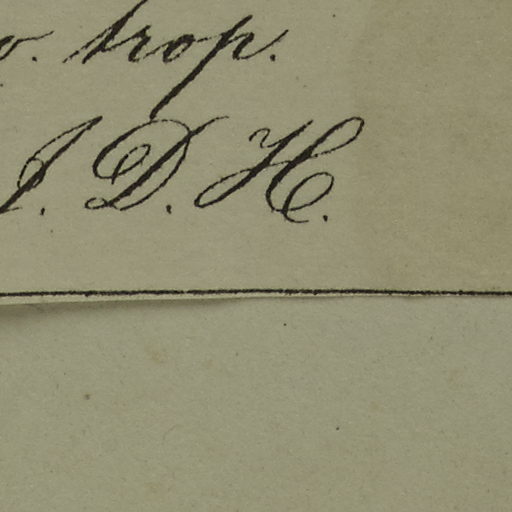 trop.
J. D. H.